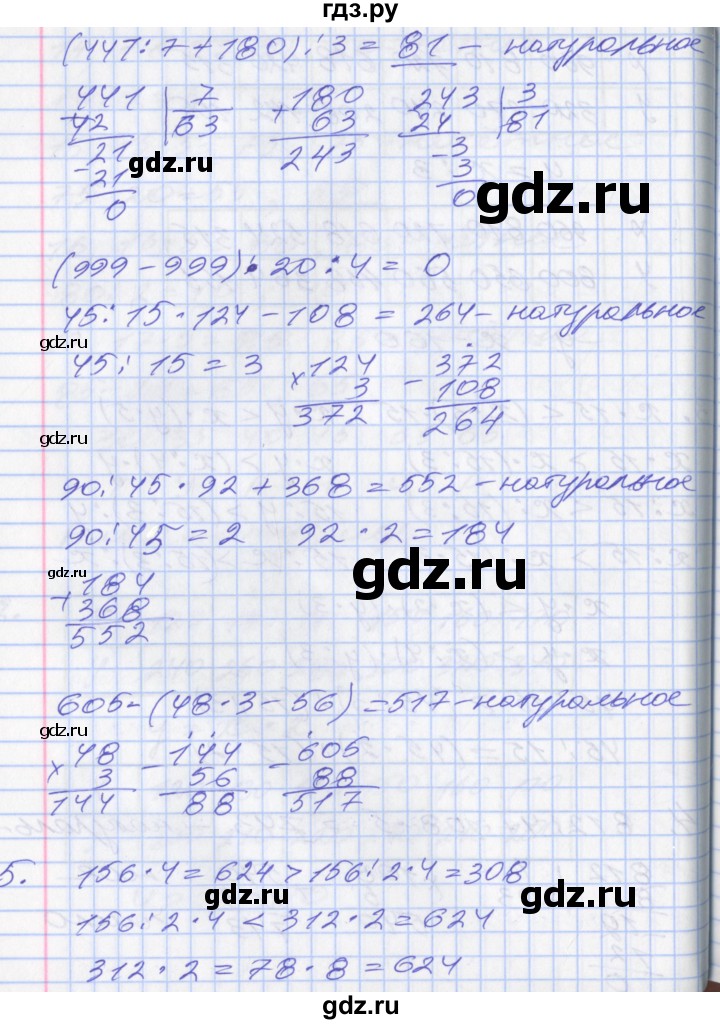 гдз.ру
(441:7+180):3=81 – натуральное
441 7 180 243 3
42 63 + 63 24 81
21 243 - 3
- 21 3
0 0
gdz.ru
gdz.ru
(999-999)•20:4=0
45:15•124-108=264- натуральное
gdz.ru
45:15=3 ×124 - 372
3 108
372 264
gdz.ru
90:45•92+368=552-натуральное
90:45=2 92•2=184
gdz.ru
gdz.ru
+184
368
552
605-(48•3-56)=517-натуральное
gdz.ru
×48 -144 -605
3 56 88
144 88 517
5. 156•4=624>156:2•4=308
gdz.ru
gdz.ru
156:2•4<312•2=624
312•2=78•8=624
gdz.ru